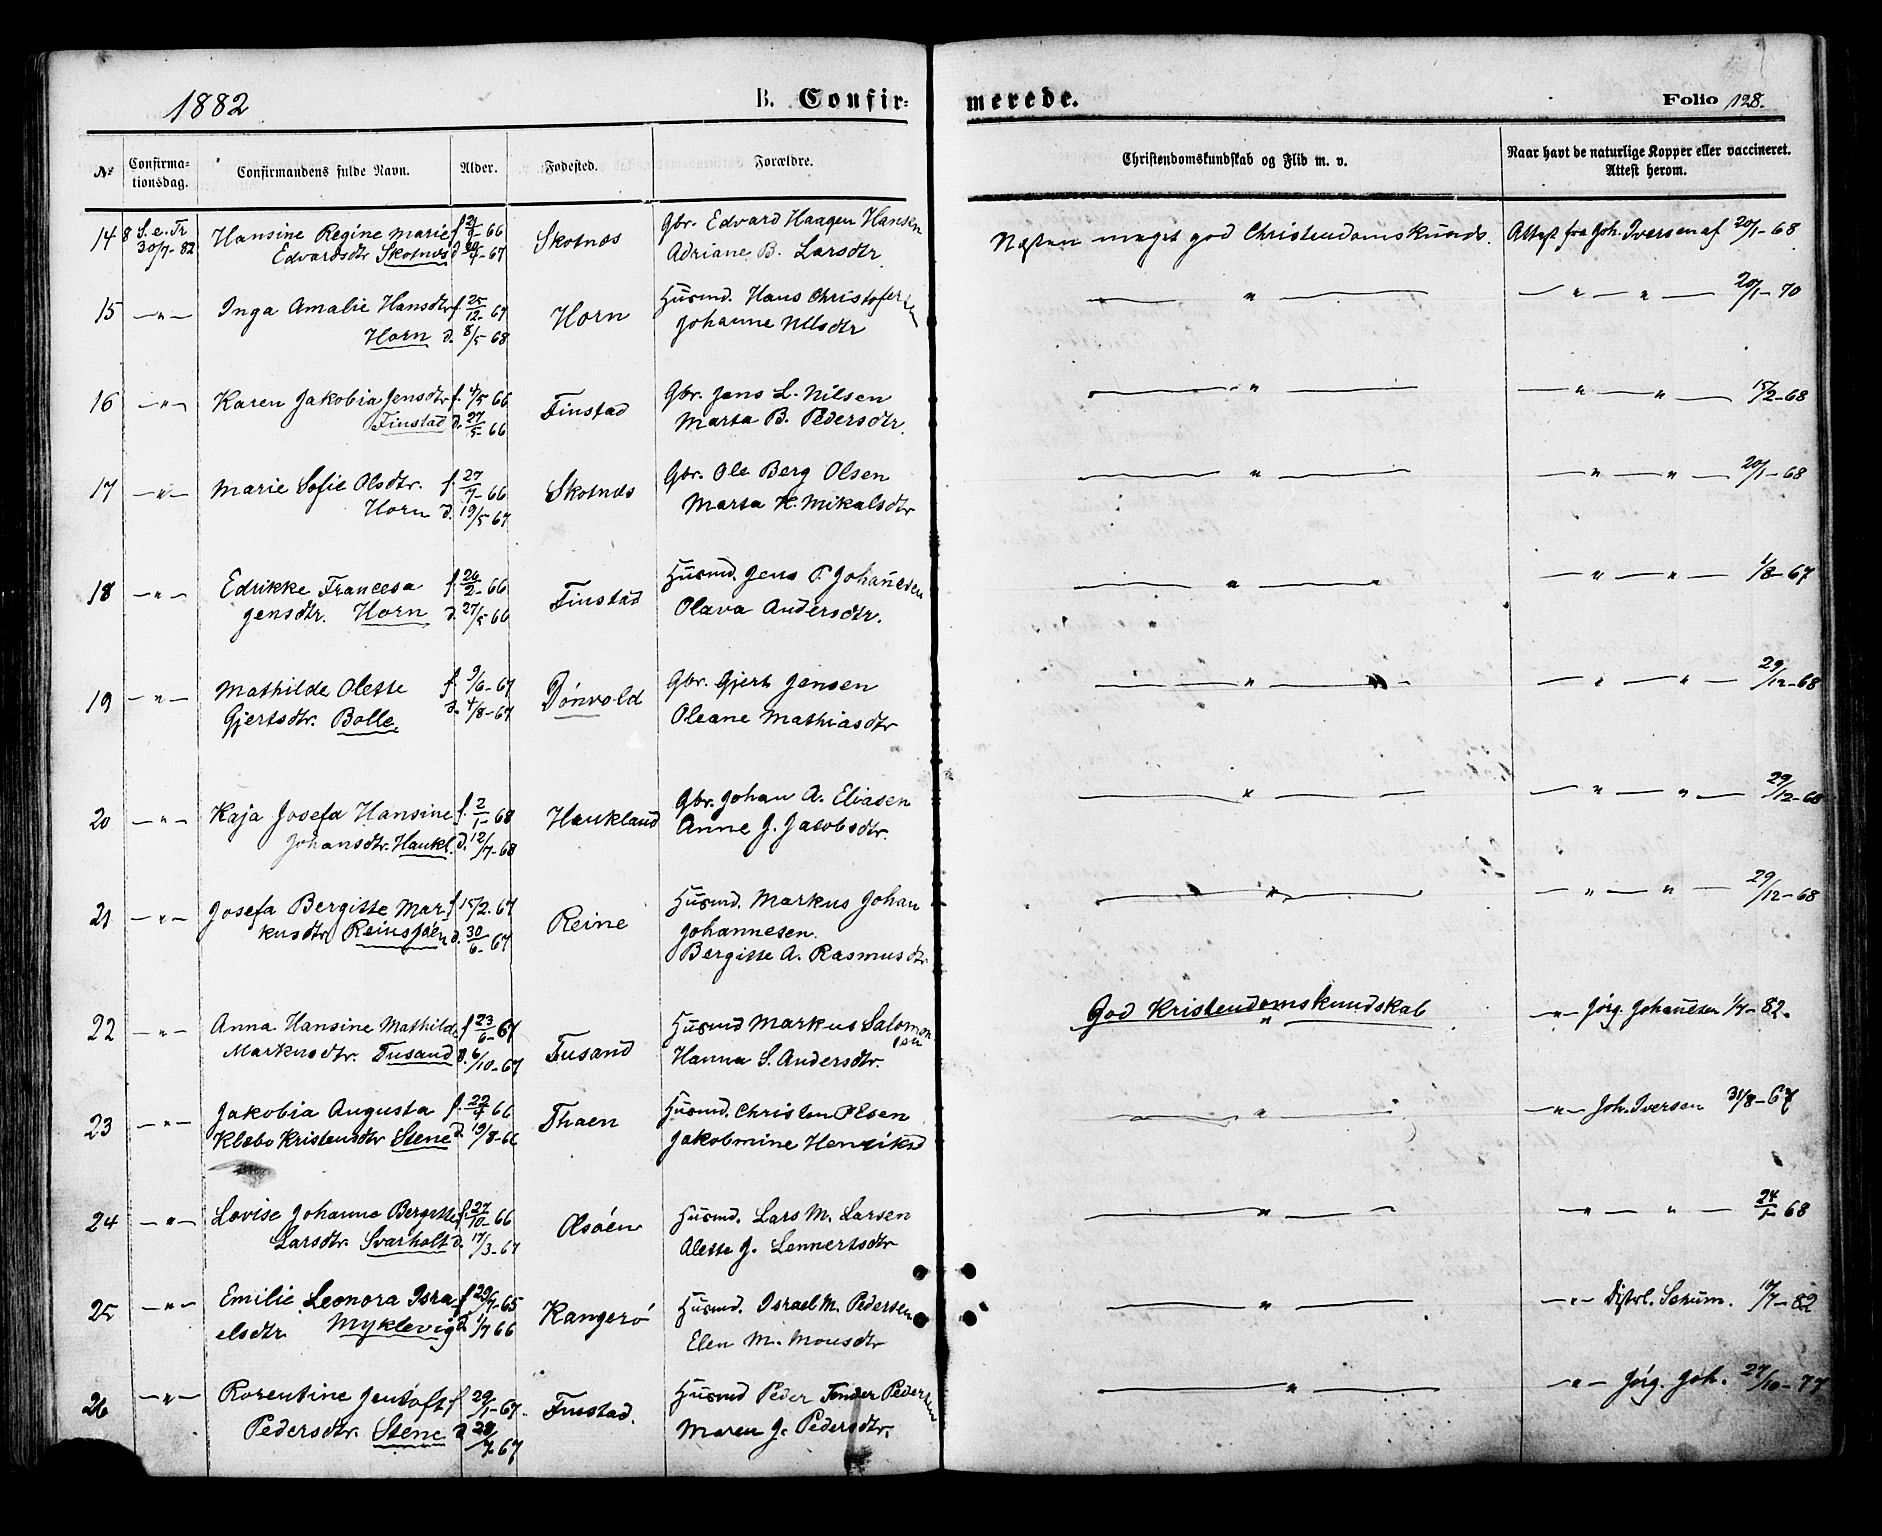 1882
B. Confir-
merede.
Folio 128.
№
Confirma-
tionsdag.
Confirmandens fulde Navn.
Alder.
Fødested.
Forældre.
Christendomskundskab og Flid m. v.
Naar havt de naturlige Kopper eller vaccineret.
Attest herom.
14 8 S. e. Tr f. 21/9 66
30/7-82 Hansine Regine Marie
Edvardsdtr Skotnes d. -67
Skotnes
Gbr. Edvard Haagen Hansen
Adriane B. Larsdtr
Næsten meget god Christendomskunds.
Attest fra Joh. Iversen af 20/1-68
15 —„— Inga Amalie Hansdtr f. 25/12-67
Horn d. 8/5-68
Horn
Husmd. Hans Christofersen
Johanne Nilsdtr
— „ —
— „ — „ — 20/1-70
16 —„— Karen Jakobia Jensdtr f. 4/5 66
Finstad d. 27/5-66
Finstad
Gbr. Jens L. Nilsen
Marta B. Pedersdtr.
— „ —
— „ — „ — 15/2-68
17 —„— Marie Sofie Olsdtr. f. 27/7-66
Horn d. 19/5-67
Skotnes
Gbr. Ole Berg Olsen
Marta K. Mikalsdtr
— „ —
— „ — „ — 20/1-68
18 —„— Edrikke Francesa f. 26/2-66
Jensdtr. Horn d. 27/5 66
Finstad
Husmd. Jens P. Johanesen
Olava Andersdtr.
— „ —
— „ — „ — 1/8-67
19 —„— Mathilde Olette f. 9/6-67
Gjertsdtr. Bolle d. 4/8-67
Dönvold
Gbr. Gjert Jensen
Oleane Mathiasdtr
— „ —
— „ — „ — 29/12-68
20 —„— Kaja Josefa Hansine f. 2/1-68
Johansdtr. Haukl. d. 12/7-68
Haukland
Gbr. Johan A. Eliasen
Anne J. Jacobsdtr.
— „ —
— „ — „ — 29/12-68
21 —„— Josefa Bergitte Mar- f. 15/2-67
kusdtr. Reinsjöen d. 30/6-67
Reine
Husmd. Markus Johan
Johannesen.
Bergitte A. Rasmusdtr
— „ —
— „ — „ — 29/12-68
22 —„— Anna Hansine Mathilde f. 23/6-67
Markusdtr. Tusand d. 6/10-67
Tusand
Husmd Markus Salomon
sen
Hanna S. Andersdtr.
God Kristendomskundskab
—„— Jörg. Johannesen 1/7-82.
23 —„— Jakobia Augusta f. 22/4 66
Klæbo Kristensdtr Stene d. 19/8-66
Thaen
Husmd. Christen Olsen
Jakobmine Henriksd
— „ —
—„— Joh. Iversen 31/8-67
24 —„— Lovise Johanna Bergitte f. 27/10-66
Larsdtr. Svarholt d. 17/3-67
Olsöen
Husmd. Lars M. Larsen
Alette J. Lennertsdtr
— „ —
— „ — „ — 24/1-68
25 —„— Emilie Leonora Isra- f. 29/7-65
elsdtr Myklevig d. 1/7 66
Kangerö
Husmd. Israel M. Pedersen
Elen M. Monsdtr
— „ —
—„— Distrl. Schum. 10/7-82
26 —„— Rorentine Jentoft f. 29/1-67.
Pedersdtr. Stene d 28/7 67
Finstad.
Husmd Peder Tönder Pedersen
Maren J. Pedersdtr.
— „ —
—„— Jörg. Joh. 27/10-77